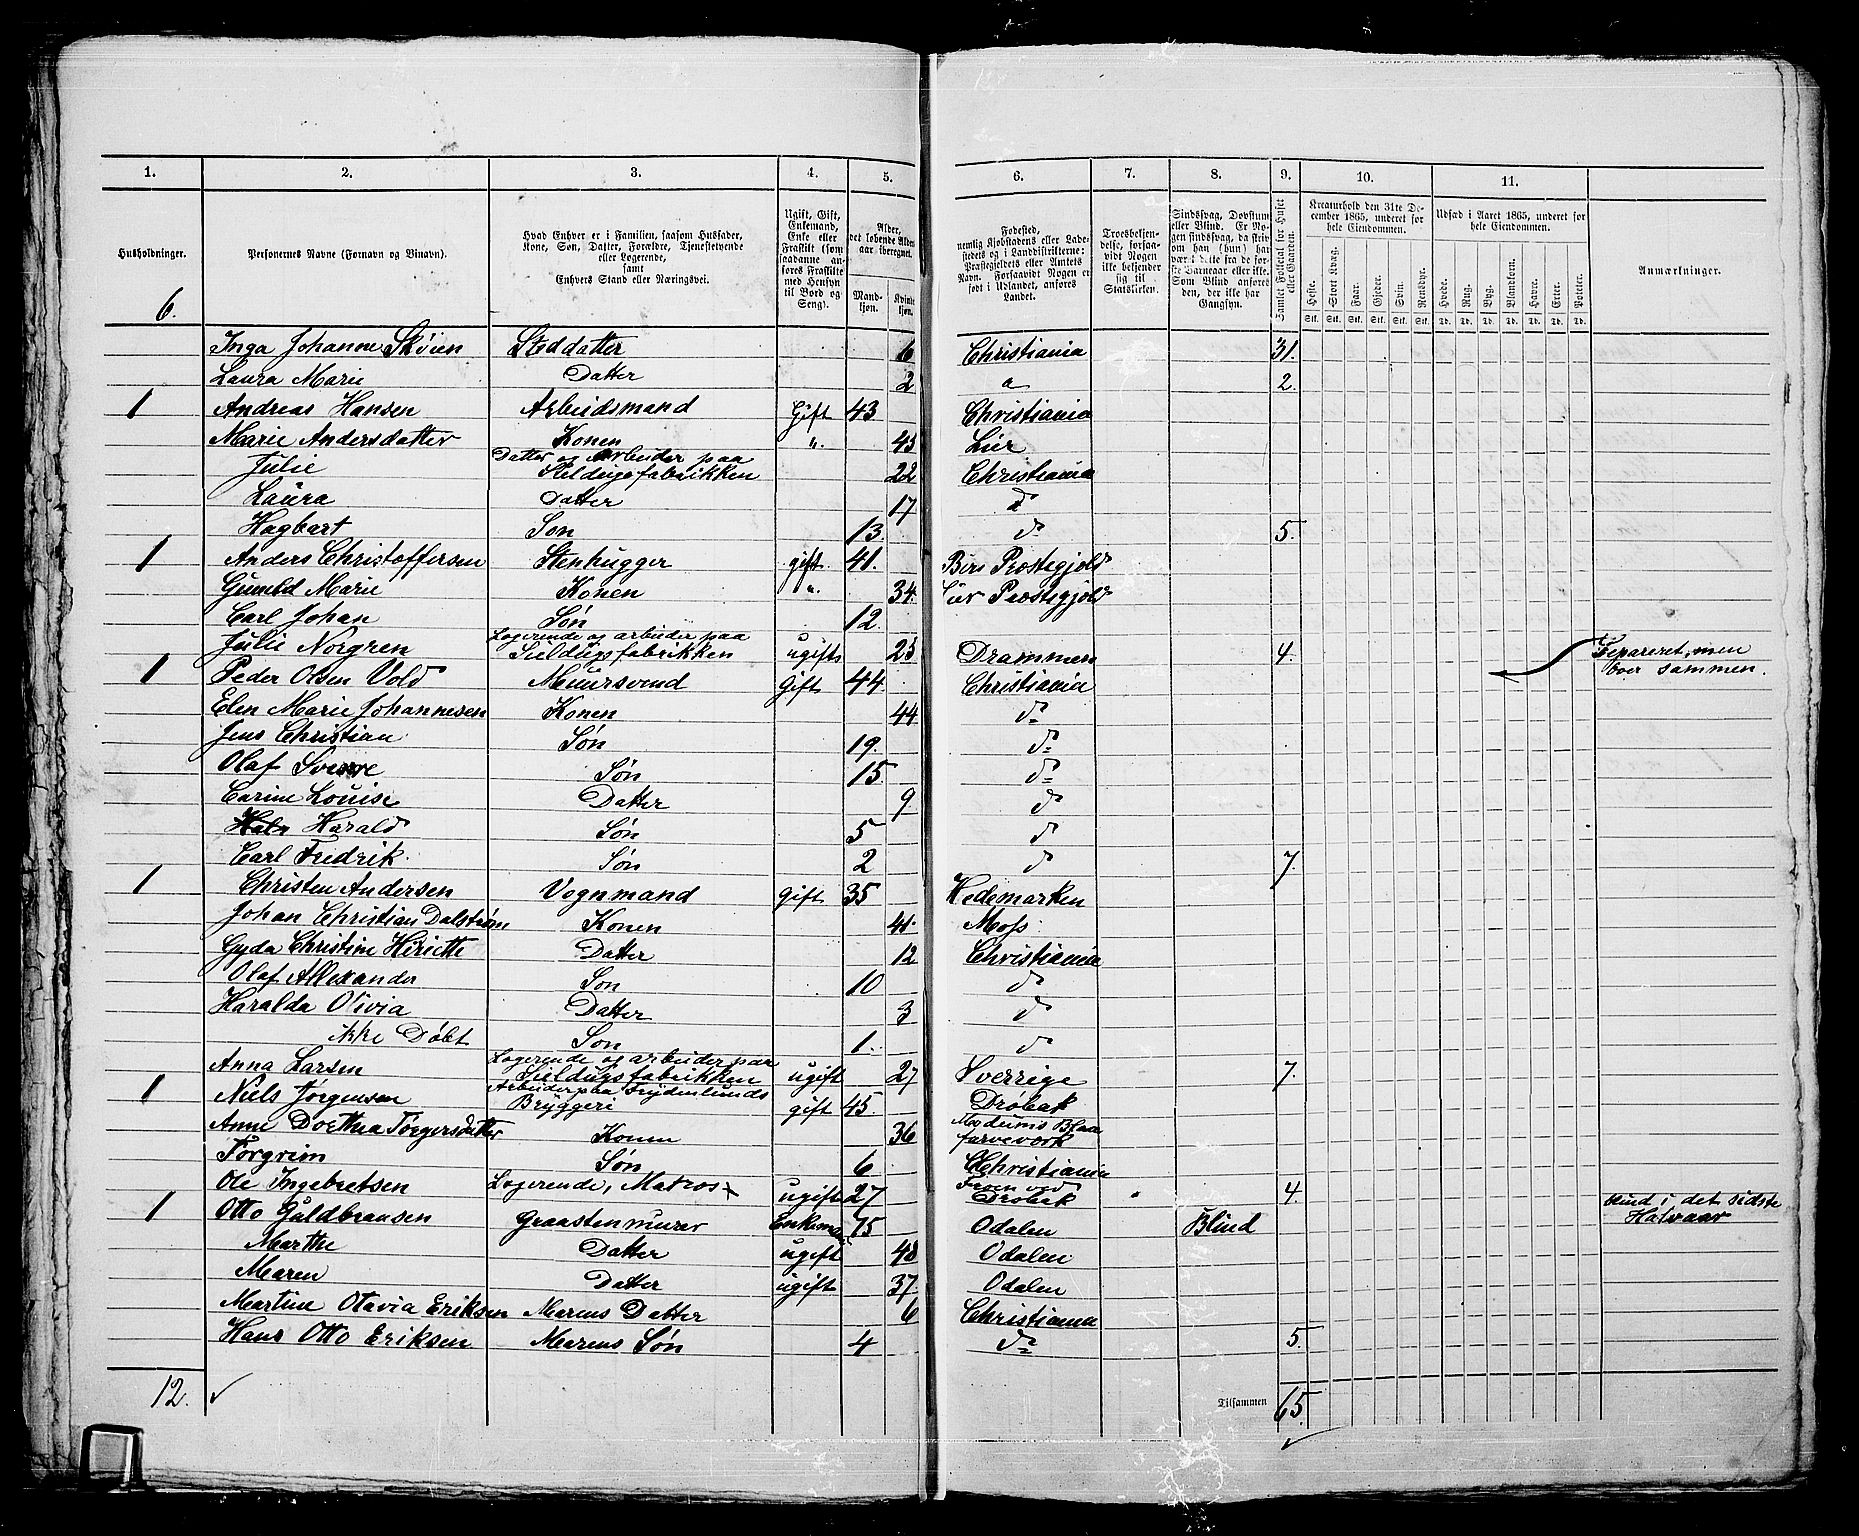 1. 2. 3. 4. 5. 6. 7. 8. 9. 10. 11.
Husholdninger. Personernes Navne (Fornavn og Binavn). Hvad Enhver er i Familien, saasom Husfader, Kone, Søn, Datter, Forældre, Tjenestetyende eller Logerende, samt Enhvers Stand eller Næringsvei. Ugift, Gift, Enkemand, Enke eller Fraskilt (som saadanne anføres Fraskilte med Hensyn til Bord og Seng). Alder, det løbende Alders aar iberegnet. Mandkjøn. Kvindekjøn.
Fødested, nemlig Kjøbstadens eller Ladestedets og i Landdistrikterne: Præstegjeldets eller Amtets Navn. Forsaavidt Nogen er født i Udlandet, anføres Landet. Troesbekjendelse, forsaavidt Nogen ikke bekjender sig til Statskirken. Sindssvag, Døvstum eller Blind. Er Nogen sindssvag, da skrives om han (hun) har vært dette fra de første Barneaar eller ikke. Som Blind anføres den, der ikke har Gangsyn. Samlet Folketal for Huset eller Gaarden. Kreaturhold den 31te December 1865, underet for hele Eiendommen. Udsæd i Aaret 1865, underet for hele Eiendommen. Anmærkninger.
Heste. Stort Kvæg. Faar. Gjeder. Svin. Rensdyr. Hvede. Rug. Byg. Blandkorn. Havre. Erter. Poteter.
Stk. Stk. Stk. Stk. Stk. Stk. Td. Td. Td. Td. Td. Td. Td.
6.
Inga Johanne Skøien Steddatter 6 Christiania 31.
Laura Marie Datter 2 2.
1 Andreas Hansen Arbeidsmand Gift 43 Christiania
Marie Andersdatter Konen " 43 Lier
Julie Datter og Arbeider paa Seildugsfabrikken 22 Christiania
Laura Datter 17 do
Hagbart Son 13. do 5.
1 Anders Christoffersen Stenhugger gift 41. Biri Præstegjeld
Gunild Marie Konen " 34. Lier Præstegjeld
Carl Johan Søn 12.
Julie Norgren Logerende og arbeider paa Seildugsfabrikken ugift 25 Drammen 4. Separeret, men bor sammen.
1 Peder Olsen Vold Muursvend Gift 44. Christiania
Elen Marie Johannesen Konen 44 do
Jens Christian Søn 19. do
Olaf Sverre Søn 15 do
Carine Louise Datter 9 do
Harald Søn 5 do
Carl Fredrik. Søn 2 do 7.
1 Christen Andersen Vognmand gift 35 Hedemarken
Johan Christian Dalstrøm Konen 41. Moss.
Gyda Christine Henriette Datter 12 Christiania
Olaf Allexander Son 10 do
Haralda Olivia Datter 3 do
ikke Døbt Son 1. do
Anna Larsen Logerende og arbeider paa Seildugsfabrikken ugift 27 Sverrige 7.
1 Niels Jørgensen Arbeider paa Frydenlunds Bryggeri gift 45. Drøbak
Anne Dorthea Torgersdatter Konen 36 Modums Blaafarveværk
Torgrim Søn 6 Christiania
Ole Ingebretsen Logerende, Matros ugift 27 Froen ved Drøbak 4.
1 Otto Guldbransen Graastenmurer Enkema 75 Odalen Blind blind i det sidste Halvaar
Marthe Datter ugift 48 Odalen
Maren Datter ugift 37 Odalen
Martine Otavia Eriksen Marens Datter 6 Christiania
Hans Otto Eriksen Marens Søn 4 do 5.
12. Tilsammen 65.